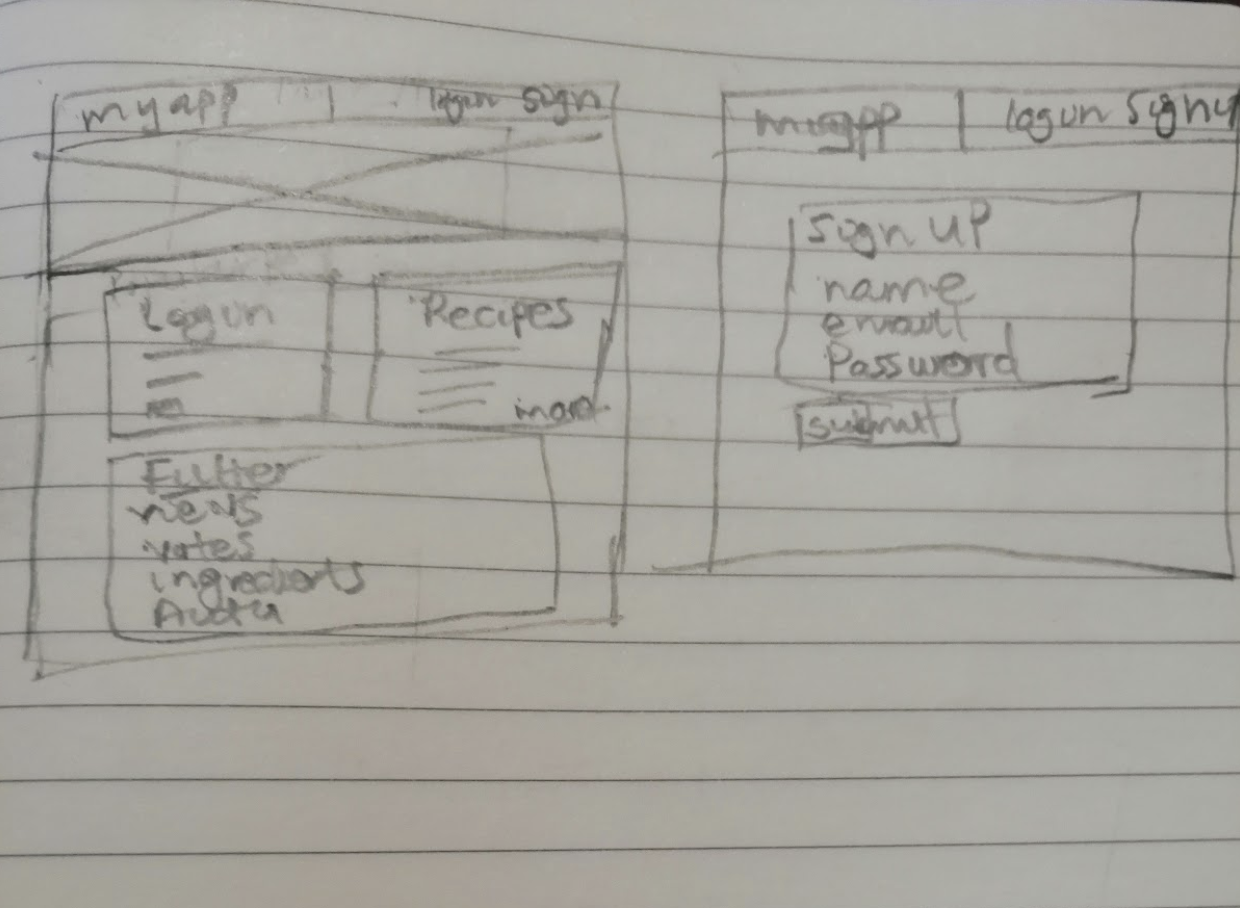 myapp login sign
Login
Recipes
more
Filter
news
votes
ingredients
myapp login signu
Sign up
name
email
Password
submit